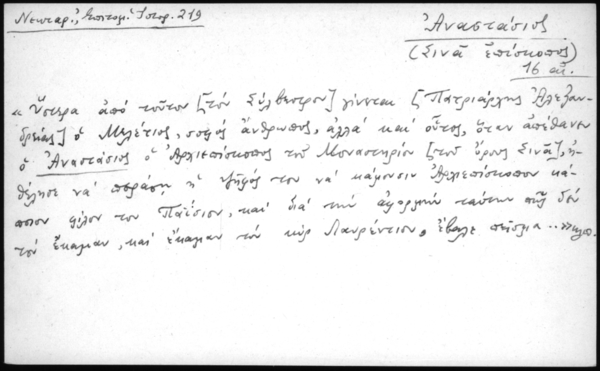 Νεκταρ., Ἐπιτομ. Ἱστορ. 219
Ἀναστάσιος
(Σινᾶ ἐπίσκοπος)
16 αἰ.
« Ὕστερα ἀπό τοῦτον [τόν Σύλβεστρον] γίνεται [Πατριάρχης Ἀλεξαν-
δρείας] ὁ Μελέτιος, σοφός ἄνθρωπος, ἀλλά καί οὗτος, ὅταν ἀπέθανεν
ὁ Ἀναστάσιος ὁ Ἀρχιεπίσκοπος τοῦ Μοναστηρίου [τοῦ ὄρους Σινᾶ], ἠ-
θέλησε νά περάσῃ ἡ ψῆφός του νά κάμουσιν Ἀρχιεπίσκοπον κά-
ποιον φίλον του Παΐσιον, καί διά τήν ἀφορμήν ταύτην πῶς δέν
τόν ἔκαμαν, καί ἔκαμαν τόν κύρ Λαυρέντιον, ἔβαλε πεῖσμα ... »